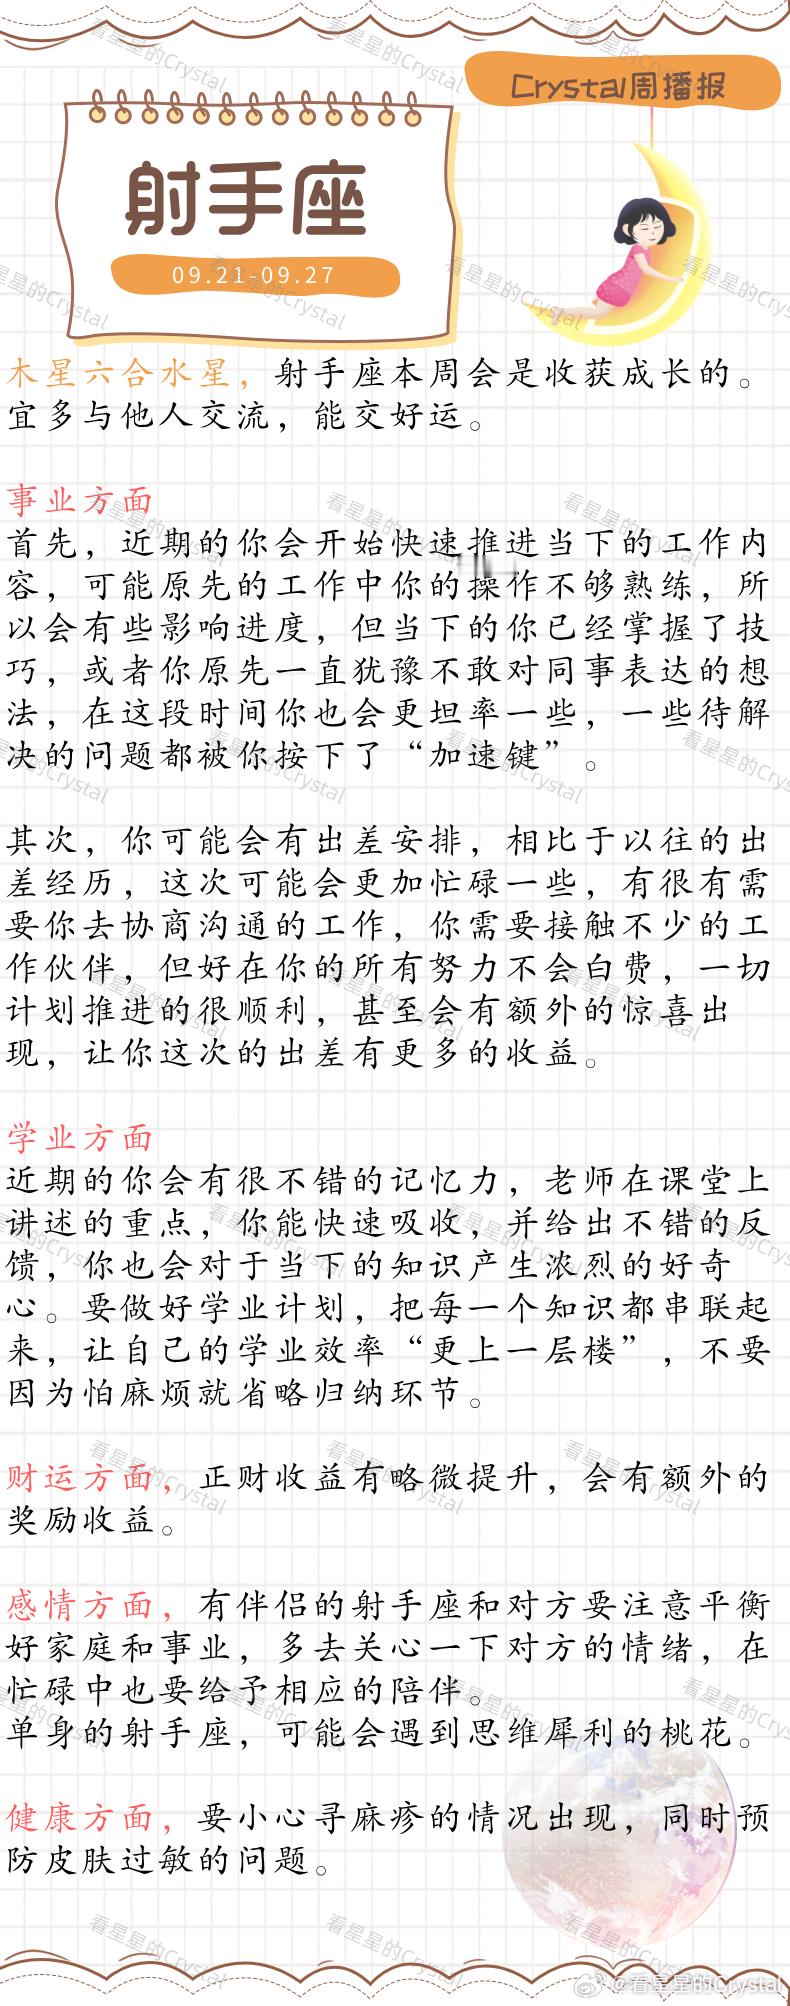 Crystal周播报
射手座
09.21-09.27
木星六合水星，射手座本周会是收获成长的。
宜多与他人交流，能交好运。
事业方面
首先，近期的你会开始快速推进当下的工作内
容，可能原先的工作中你的操作不够熟练，所
以会有些影响进度，但当下的你已经掌握了技
巧，或者你原先一直犹豫不敢对同事表达的想
法，在这段时间你也会更坦率一些，一些待解
决的问题都被你按下了“加速键”。
其次，你可能会有出差安排，相比于以往的出
差经历，这次可能会更加忙碌一些，有很有需
要你去协商沟通的工作，你需要接触不少的工
作伙伴，但好在你的所有努力不会白费，一切
计划推进的很顺利，甚至会有额外的惊喜出
现，让你这次的出差有更多的收益。
学业方面
近期的你会有很不错的记忆力，老师在课堂上
讲述的重点，你能快速吸收，并给出不错的反
馈，你也会对于当下的知识产生浓烈的好奇
心。要做好学业计划，把每一个知识都串联起
来，让自己的学业效率“更上一层楼”，不要
因为怕麻烦就省略归纳环节。
财运方面，正财收益有略微提升，会有额外的
奖励收益。
感情方面，有伴侣的射手座和对方要注意平衡
好家庭和事业，多去关心一下对方的情绪，在
忙碌中也要给予相应的陪伴。
单身的射手座，可能会遇到思维犀利的桃花。
健康方面，要小心寻麻疹的情况出现，同时预
防皮肤过敏的问题。
@看星星的Crystal